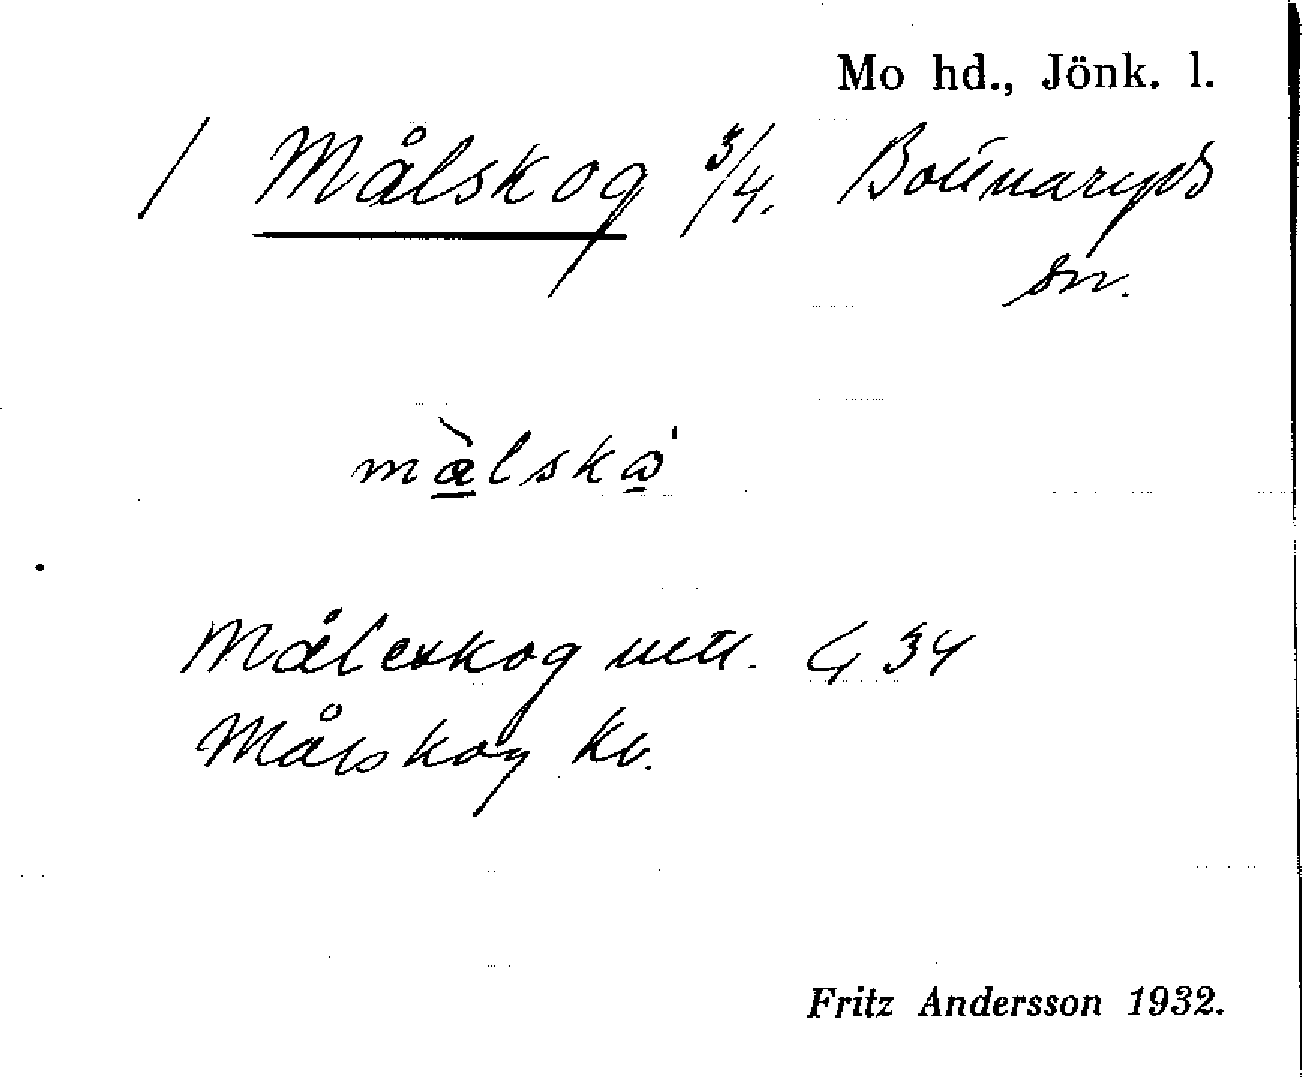 Mo hd., Jönk. l.
/ Målskog 3/4. Bottnaryds
sn.
målskå
Målerskog mtl. G 34
Målskog kb.
Fritz Andersson 1932.